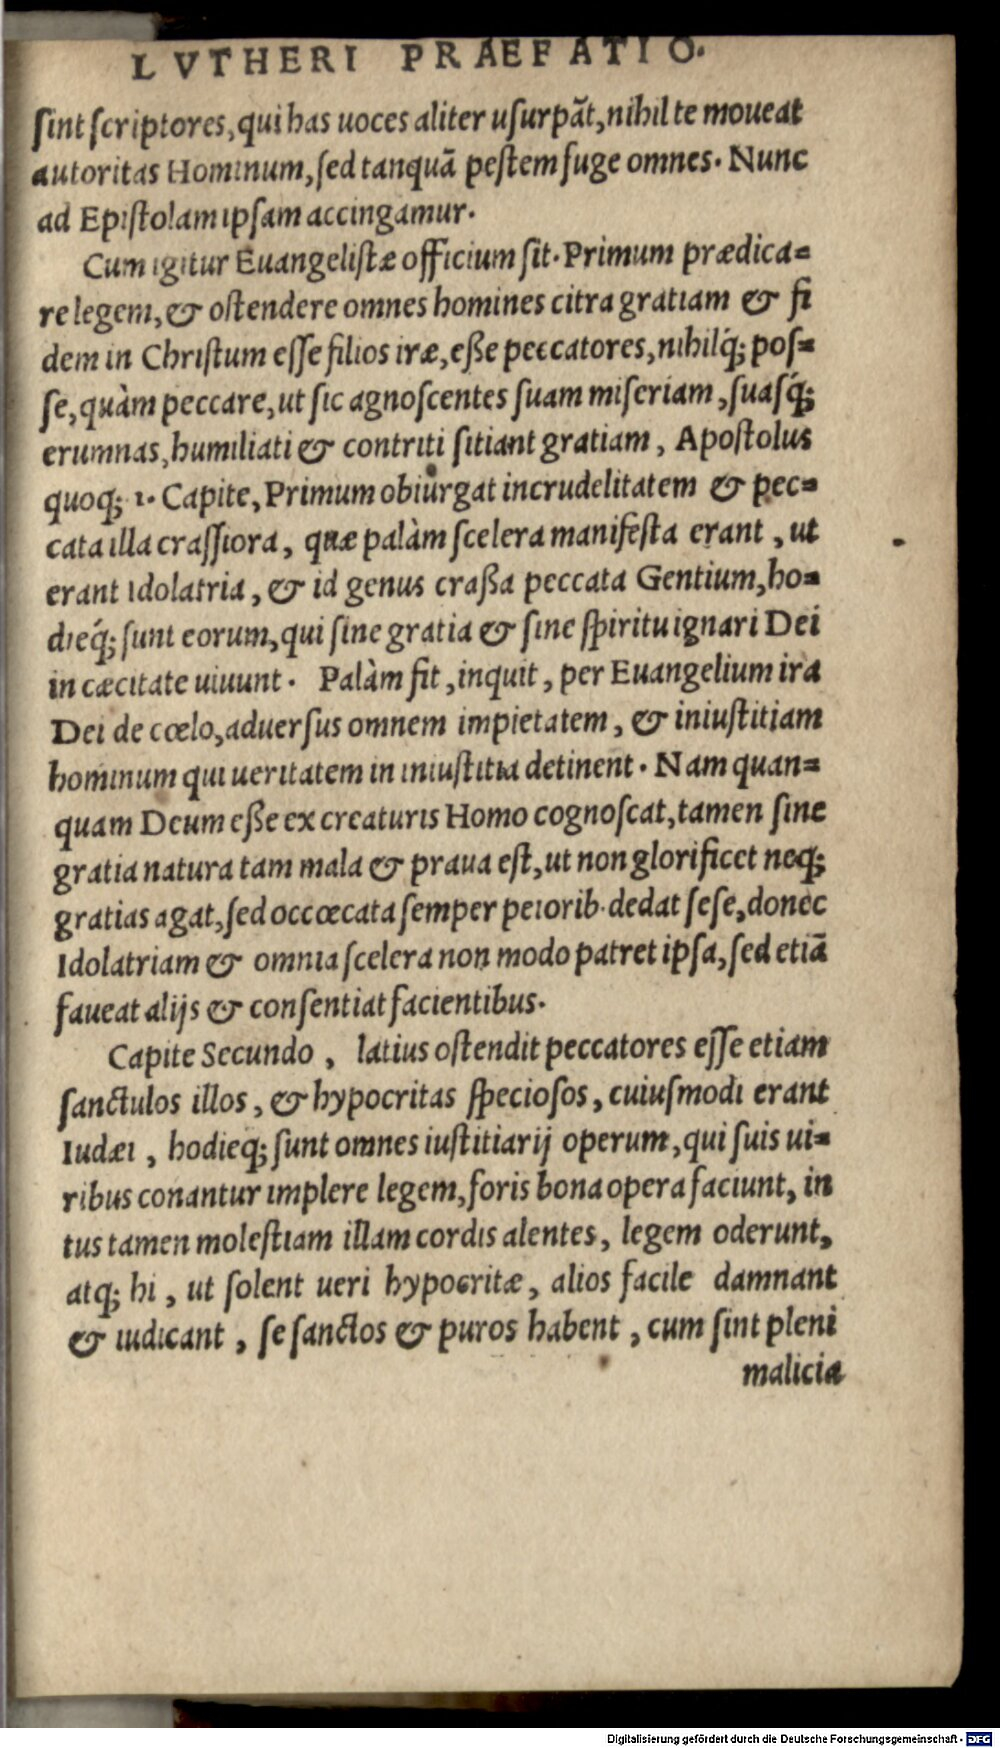 LVTHERI PRAEFATIO.
ſint ſcriptores, qui has uoces aliter uſurpāt, nihil te moueat
autoritas Hominum, ſed tanquā peſtem fuge omnes. Nunc
ad Epiſtolam ipſam accingamur.
Cum igitur Euangeliſtæ officium ſit. Primum prædica=
re legem, & oſtendere omnes homines citra gratiam & fi
dem in Chriſtum eſſe filios iræ, eße peccatores, nihilq́; poſ=
ſe, quàm peccare, ut ſic agnoſcentes ſuam miſeriam, ſuasq́;
erumnas, humiliati & contriti ſitiant gratiam, Apoſtolus
quoq; 1. Capite, Primum obiurgat incrudelitatem & pec=
cata illa craſſiora, quæ palàm ſcelera manifeſta erant, ut
erant Idolatria, & id genus craßa peccata Gentium, ho=
dieq́; ſunt eorum, qui ſine gratia & ſine ſpiritu ignari Dei
in cæcitate uiuunt. Palàm fit, inquit, per Euangelium ira
Dei de cœlo, aduerſus omnem impietatem, & iniuſtitiam
hominum qui ueritatem in iniuſtitia detinent. Nam quan=
quam Deum eße ex creaturis Homo cognoſcat, tamen ſine
gratia natura tam mala & praua eſt, ut non glorificet neq;
gratias agat, ſed occœcata ſemper peiorib. dedat ſeſe, donec
Idolatriam & omnia ſcelera non modo patret ipſa, ſed etiā
faueat alijs & conſentiat facientibus.
Capite Secundo, latius oſtendit peccatores eſſe etiam
ſanctulos illos, & hypocritas ſpecioſos, cuiuſmodi erant
Iudæi, hodieq; ſunt omnes iuſtitiarij operum, qui ſuis ui=
ribus conantur implere legem, foris bona opera faciunt, in
tus tamen moleſtiam illam cordis alentes, legem oderunt,
atq; hi, ut ſolent ueri hypocritæ, alios facile damnant
& iudicant, ſe ſanctos & puros habent, cum ſint pleni
malicia
Digitalisierung gefördert durch die Deutsche Forschungsgemeinschaft - DFG